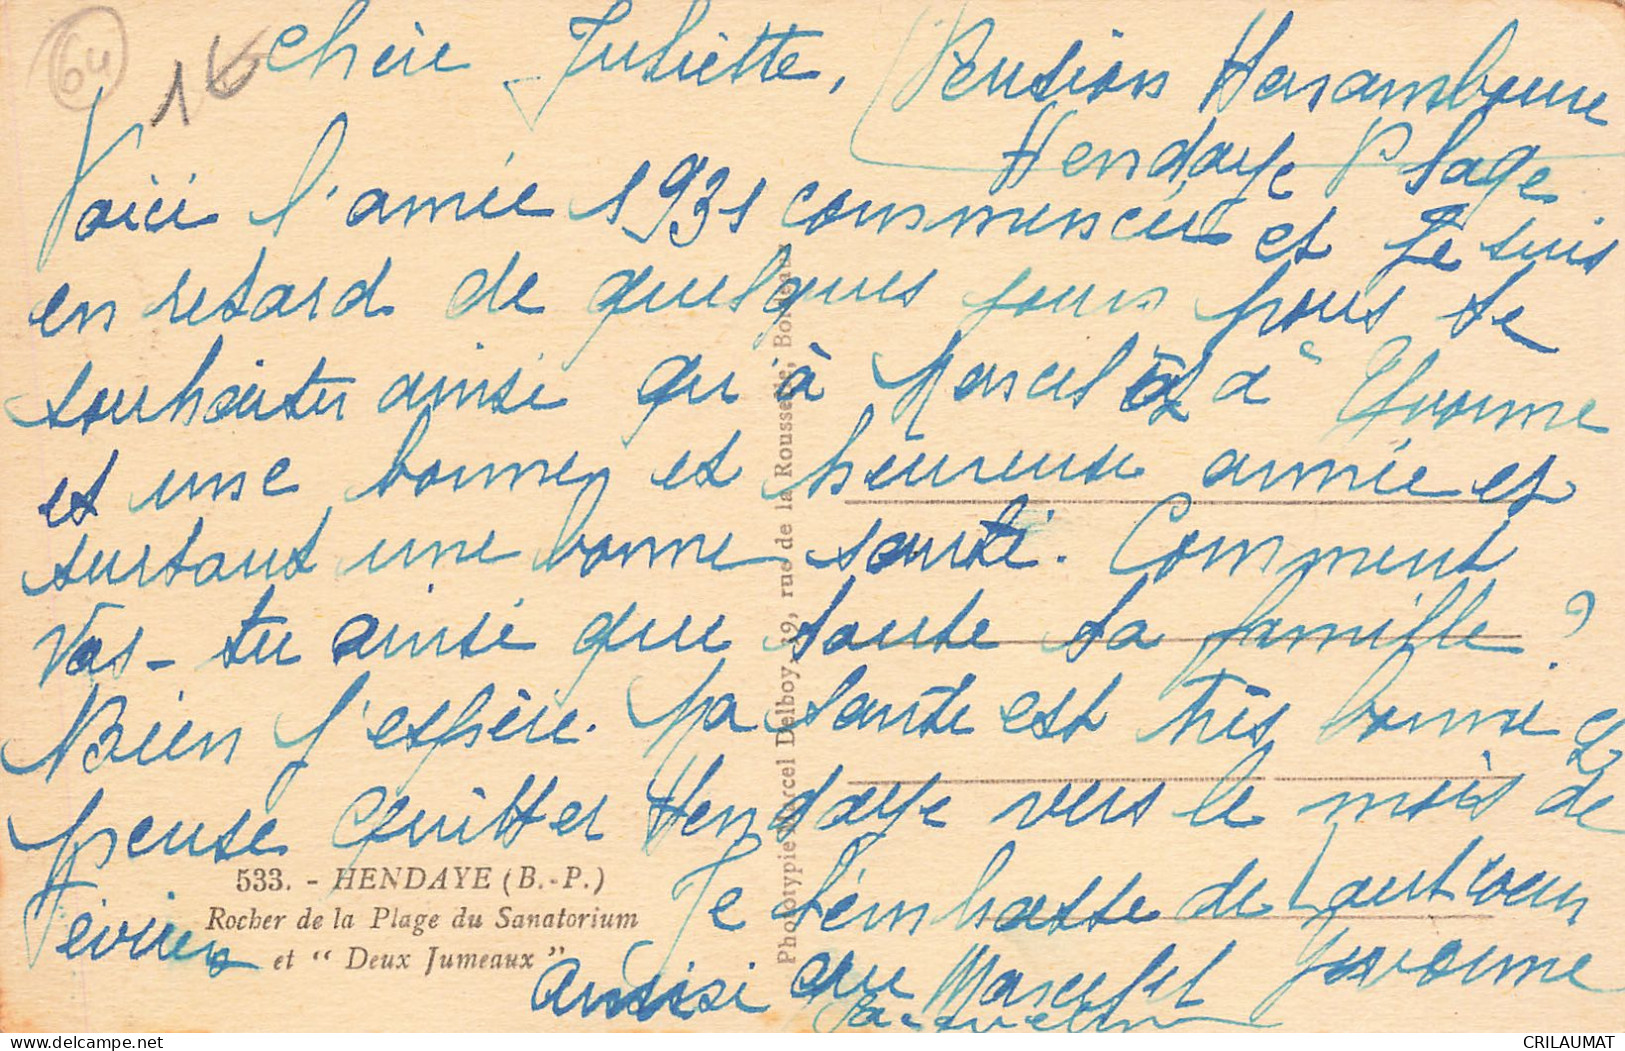 64
16
Chère Juliette,
Pension
Hendaye Plage
Voici l'année 1931 commencée et Je suis
en retard de quelques jours pour te
souhaiter ainsi qu'à Marcel et à Yvonne
et une bonne et heureuse année et
surtout une bonne santé. Comment
Vas-tu ainsi que toute ta famille ?
Bien j'espère. Ma santé est très bonne et
pense quitter Hendaye vers le mois de
Février
Je t'embrasse de tout cœur
ainsi que Marcel et Yvonne
533. - HENDAYE (B.-P.)
Rocher de la Plage du Sanatorium
et " Deux Jumeaux "
Phototypie Marcel Delboy, 39, rue de la Rousselle, Bordeaux
delcampe.net
CRILAUMAT